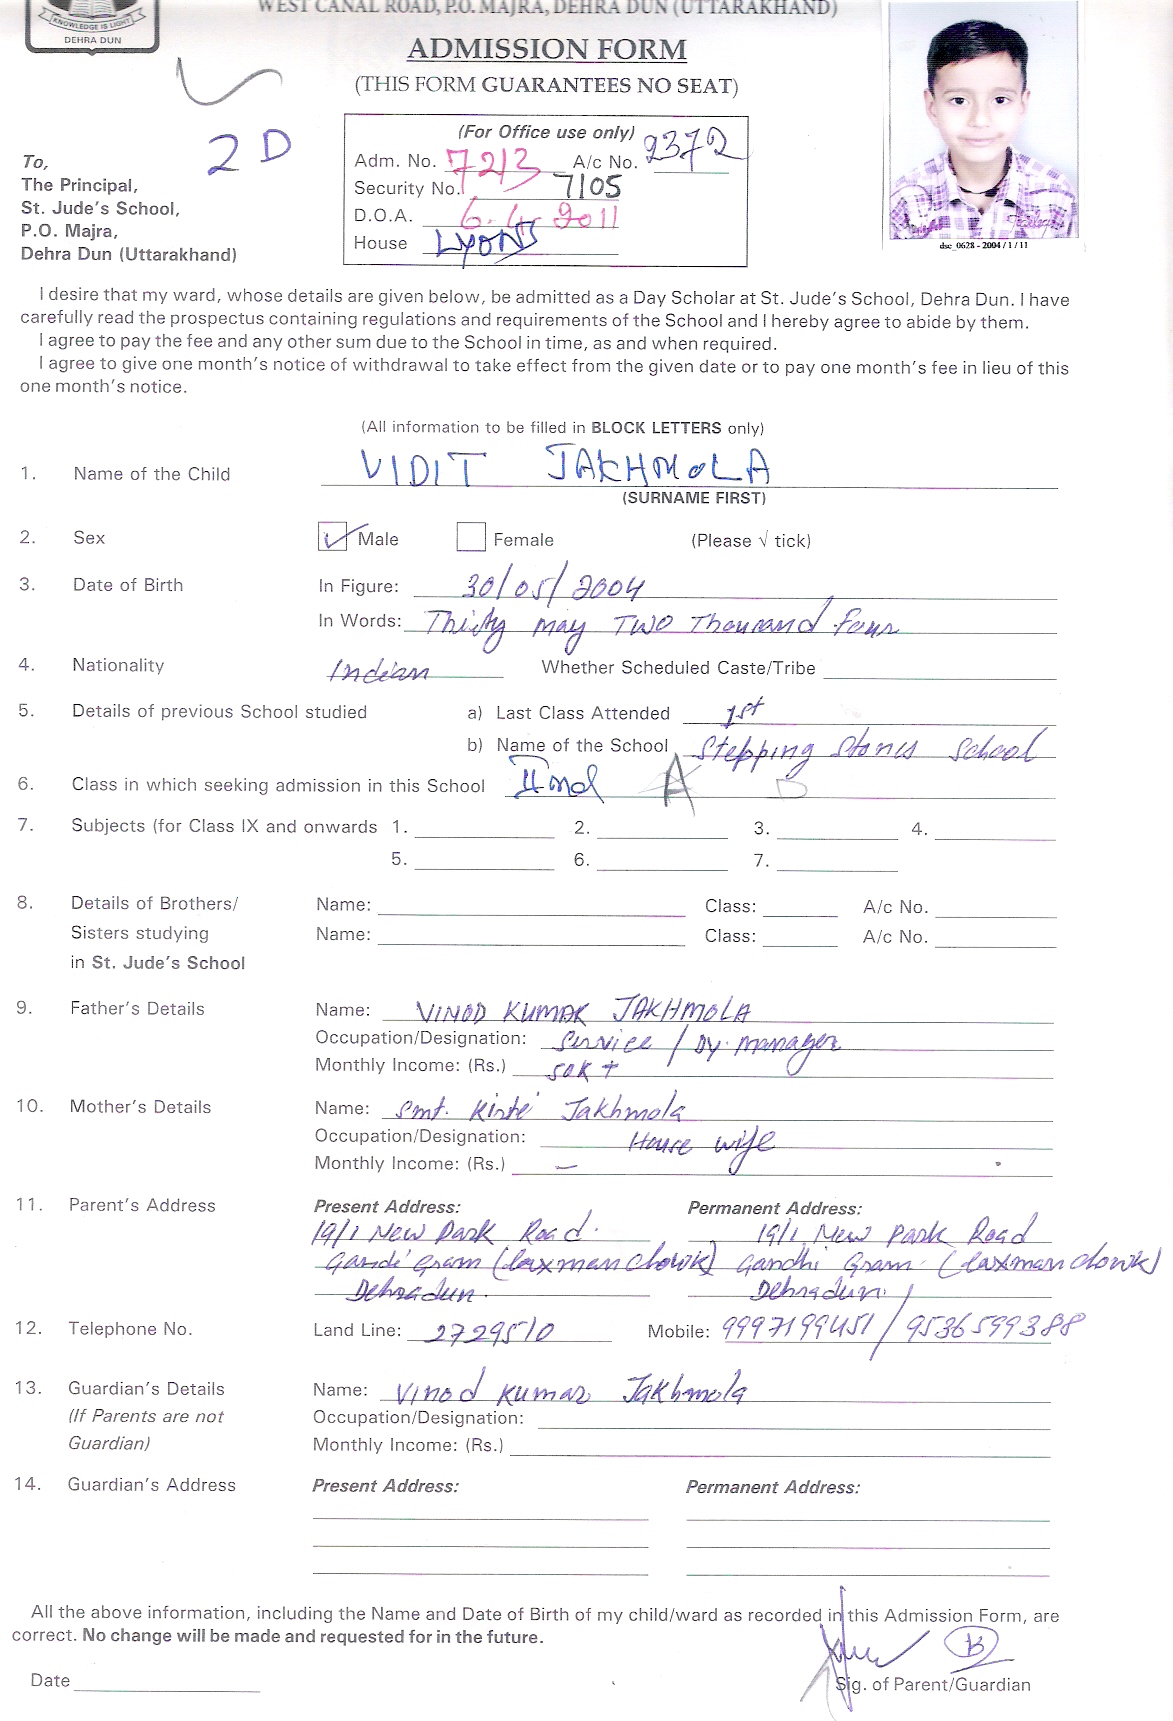 KNOWLEDGE IS LIGHT
DEHRA DUN
WEST CANAL ROAD, P.O. MAJRA, DEHRA DUN (UTTARAKHAND)
ADMISSION FORM
(THIS FORM GUARANTEES NO SEAT)
2 D
(For Office use only)
Adm. No. 7213 A/c No. 2372
Security No. 7105
D.O.A. 6.4.2011
House LYONS
dsc_0628 - 2004 / 1 / 11
To,
The Principal,
St. Jude's School,
P.O. Majra,
Dehra Dun (Uttarakhand)
I desire that my ward, whose details are given below, be admitted as a Day Scholar at St. Jude's School, Dehra Dun. I have
carefully read the prospectus containing regulations and requirements of the School and I hereby agree to abide by them.
I agree to pay the fee and any other sum due to the School in time, as and when required.
I agree to give one month's notice of withdrawal to take effect from the given date or to pay one month's fee in lieu of this
one month's notice.
(All information to be filled in BLOCK LETTERS only)
1. Name of the Child VIDIT JAKHMOLA
(SURNAME FIRST)
2. Sex Male Female (Please √ tick)
3. Date of Birth In Figure: 30/05/2004
In Words: Thirty may TWO Thousand four
4. Nationality Indian Whether Scheduled Caste/Tribe
5. Details of previous School studied a) Last Class Attended 1st
b) Name of the School Stepping Stones School
6. Class in which seeking admission in this School IInd A D
7. Subjects (for Class IX and onwards 1. 2. 3. 4.
5. 6. 7.
8. Details of Brothers/ Name: Class: A/c No.
Sisters studying Name: Class: A/c No.
in St. Jude's School
9. Father's Details Name: VINOD KUMAR JAKHMOLA
Occupation/Designation: Service / Dy. manager
Monthly Income: (Rs.) 50K +
10. Mother's Details Name: Smt. Kirti Jakhmola
Occupation/Designation: House wife
Monthly Income: (Rs.) —
11. Parent's Address Present Address: Permanent Address:
19/1 New Park Road 19/1, New Park Road
Gandi Gram (laxman chowk) Gandhi Gram (laxman chowk)
Dehradun. Dehradun.
12. Telephone No. Land Line: 2729510 Mobile: 9997199451 / 9536599388
13. Guardian's Details Name: Vinod Kumar Jakhmola
(If Parents are not Occupation/Designation:
Guardian) Monthly Income: (Rs.)
14. Guardian's Address Present Address: Permanent Address:
All the above information, including the Name and Date of Birth of my child/ward as recorded in this Admission Form, are
correct. No change will be made and requested for in the future.
B
Date Sig. of Parent/Guardian